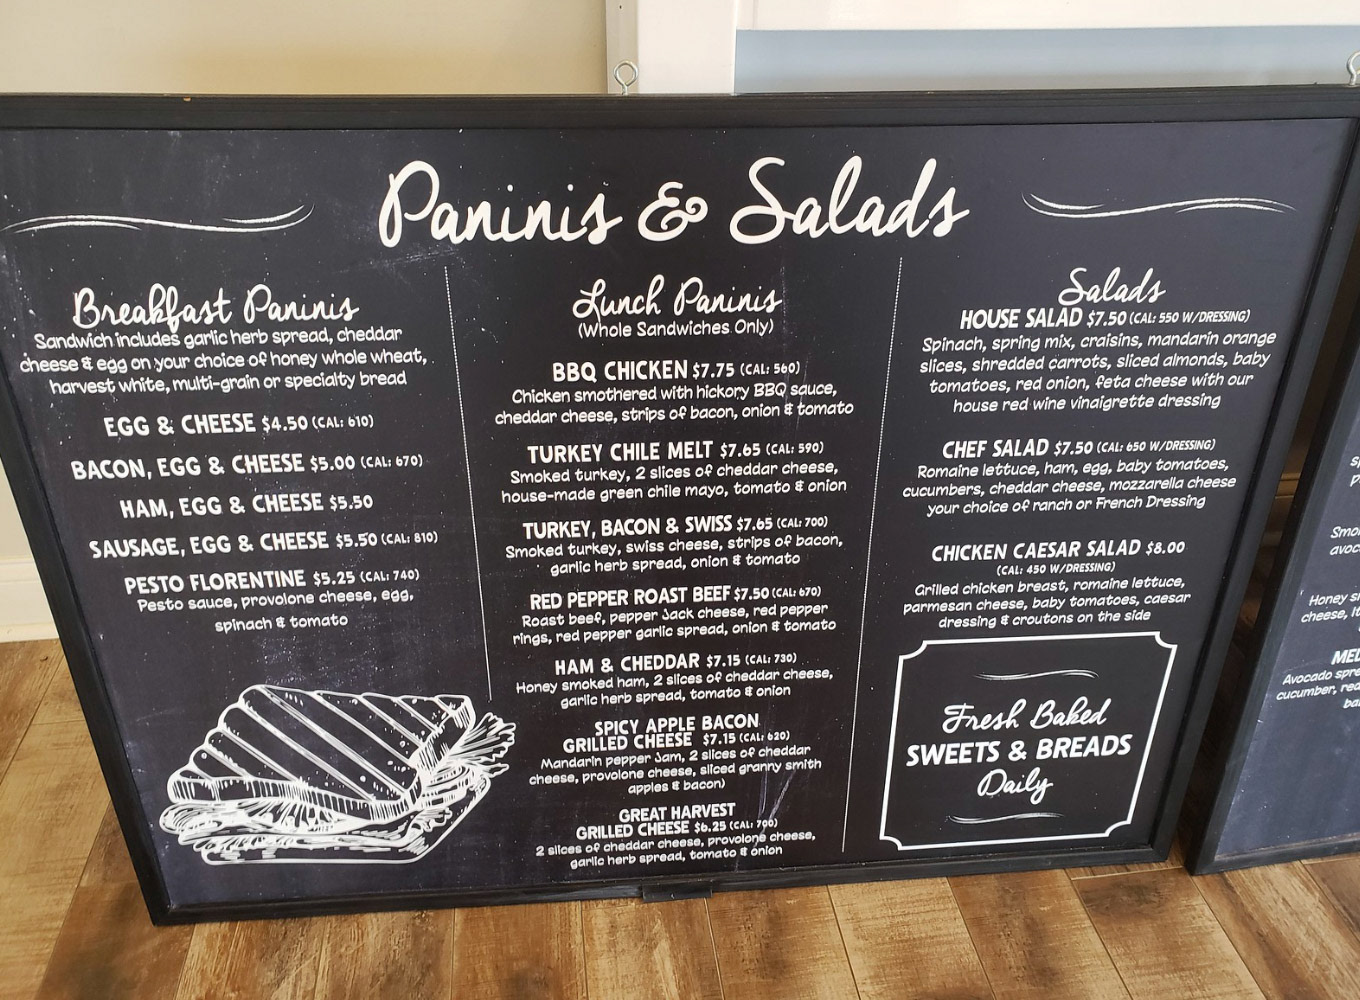 Paninis & Salads
Breakfast Paninis
Sandwich includes garlic herb spread, cheddar
cheese & egg on your choice of honey whole wheat,
harvest white, multi-grain or specialty bread
EGG & CHEESE $4.50 (CAL: 610)
BACON, EGG & CHEESE $5.00 (CAL: 670)
HAM, EGG & CHEESE $5.50
SAUSAGE, EGG & CHEESE $5.50 (CAL: 810)
PESTO FLORENTINE $5.25 (CAL: 740)
Pesto sauce, provolone cheese, egg,
spinach & tomato
Lunch Paninis
(Whole Sandwiches Only)
BBQ CHICKEN $7.75 (CAL: 560)
Chicken smothered with hickory BBQ sauce,
cheddar cheese, strips of bacon, onion & tomato
TURKEY CHILE MELT $7.65 (CAL: 590)
Smoked turkey, 2 slices of cheddar cheese,
house-made green chile mayo, tomato & onion
TURKEY, BACON & SWISS $7.65 (CAL: 700)
Smoked turkey, swiss cheese, strips of bacon,
garlic herb spread, onion & tomato
RED PEPPER ROAST BEEF $7.50 (CAL: 670)
Roast beef, pepper Jack cheese, red pepper
rings, red pepper garlic spread, onion & tomato
HAM & CHEDDAR $7.15 (CAL: 730)
Honey smoked ham, 2 slices of cheddar cheese,
garlic herb spread, tomato & onion
SPICY APPLE BACON
GRILLED CHEESE $7.15 (CAL: 620)
Mandarin pepper Jam, 2 slices of cheddar
cheese, provolone cheese, sliced granny smith
apples & bacon)
GREAT HARVEST
GRILLED CHEESE $6.25 (CAL: 700)
2 slices of cheddar cheese, provolone cheese,
garlic herb spread, tomato & onion
Salads
HOUSE SALAD $7.50 (CAL: 550 W/DRESSING)
Spinach, spring mix, craisins, mandarin orange
slices, shredded carrots, sliced almonds, baby
tomatoes, red onion, feta cheese with our
house red wine vinaigrette dressing
CHEF SALAD $7.50 (CAL: 650 W/DRESSING)
Romaine lettuce, ham, egg, baby tomatoes,
cucumbers, cheddar cheese, mozzarella cheese
your choice of ranch or French Dressing
CHICKEN CAESAR SALAD $8.00
(CAL: 450 W/DRESSING)
Grilled chicken breast, romaine lettuce,
parmesan cheese, baby tomatoes, caesar
dressing & croutons on the side
Fresh Baked
SWEETS & BREADS
Daily
Honey
cheese,
Avocado
cucumber,